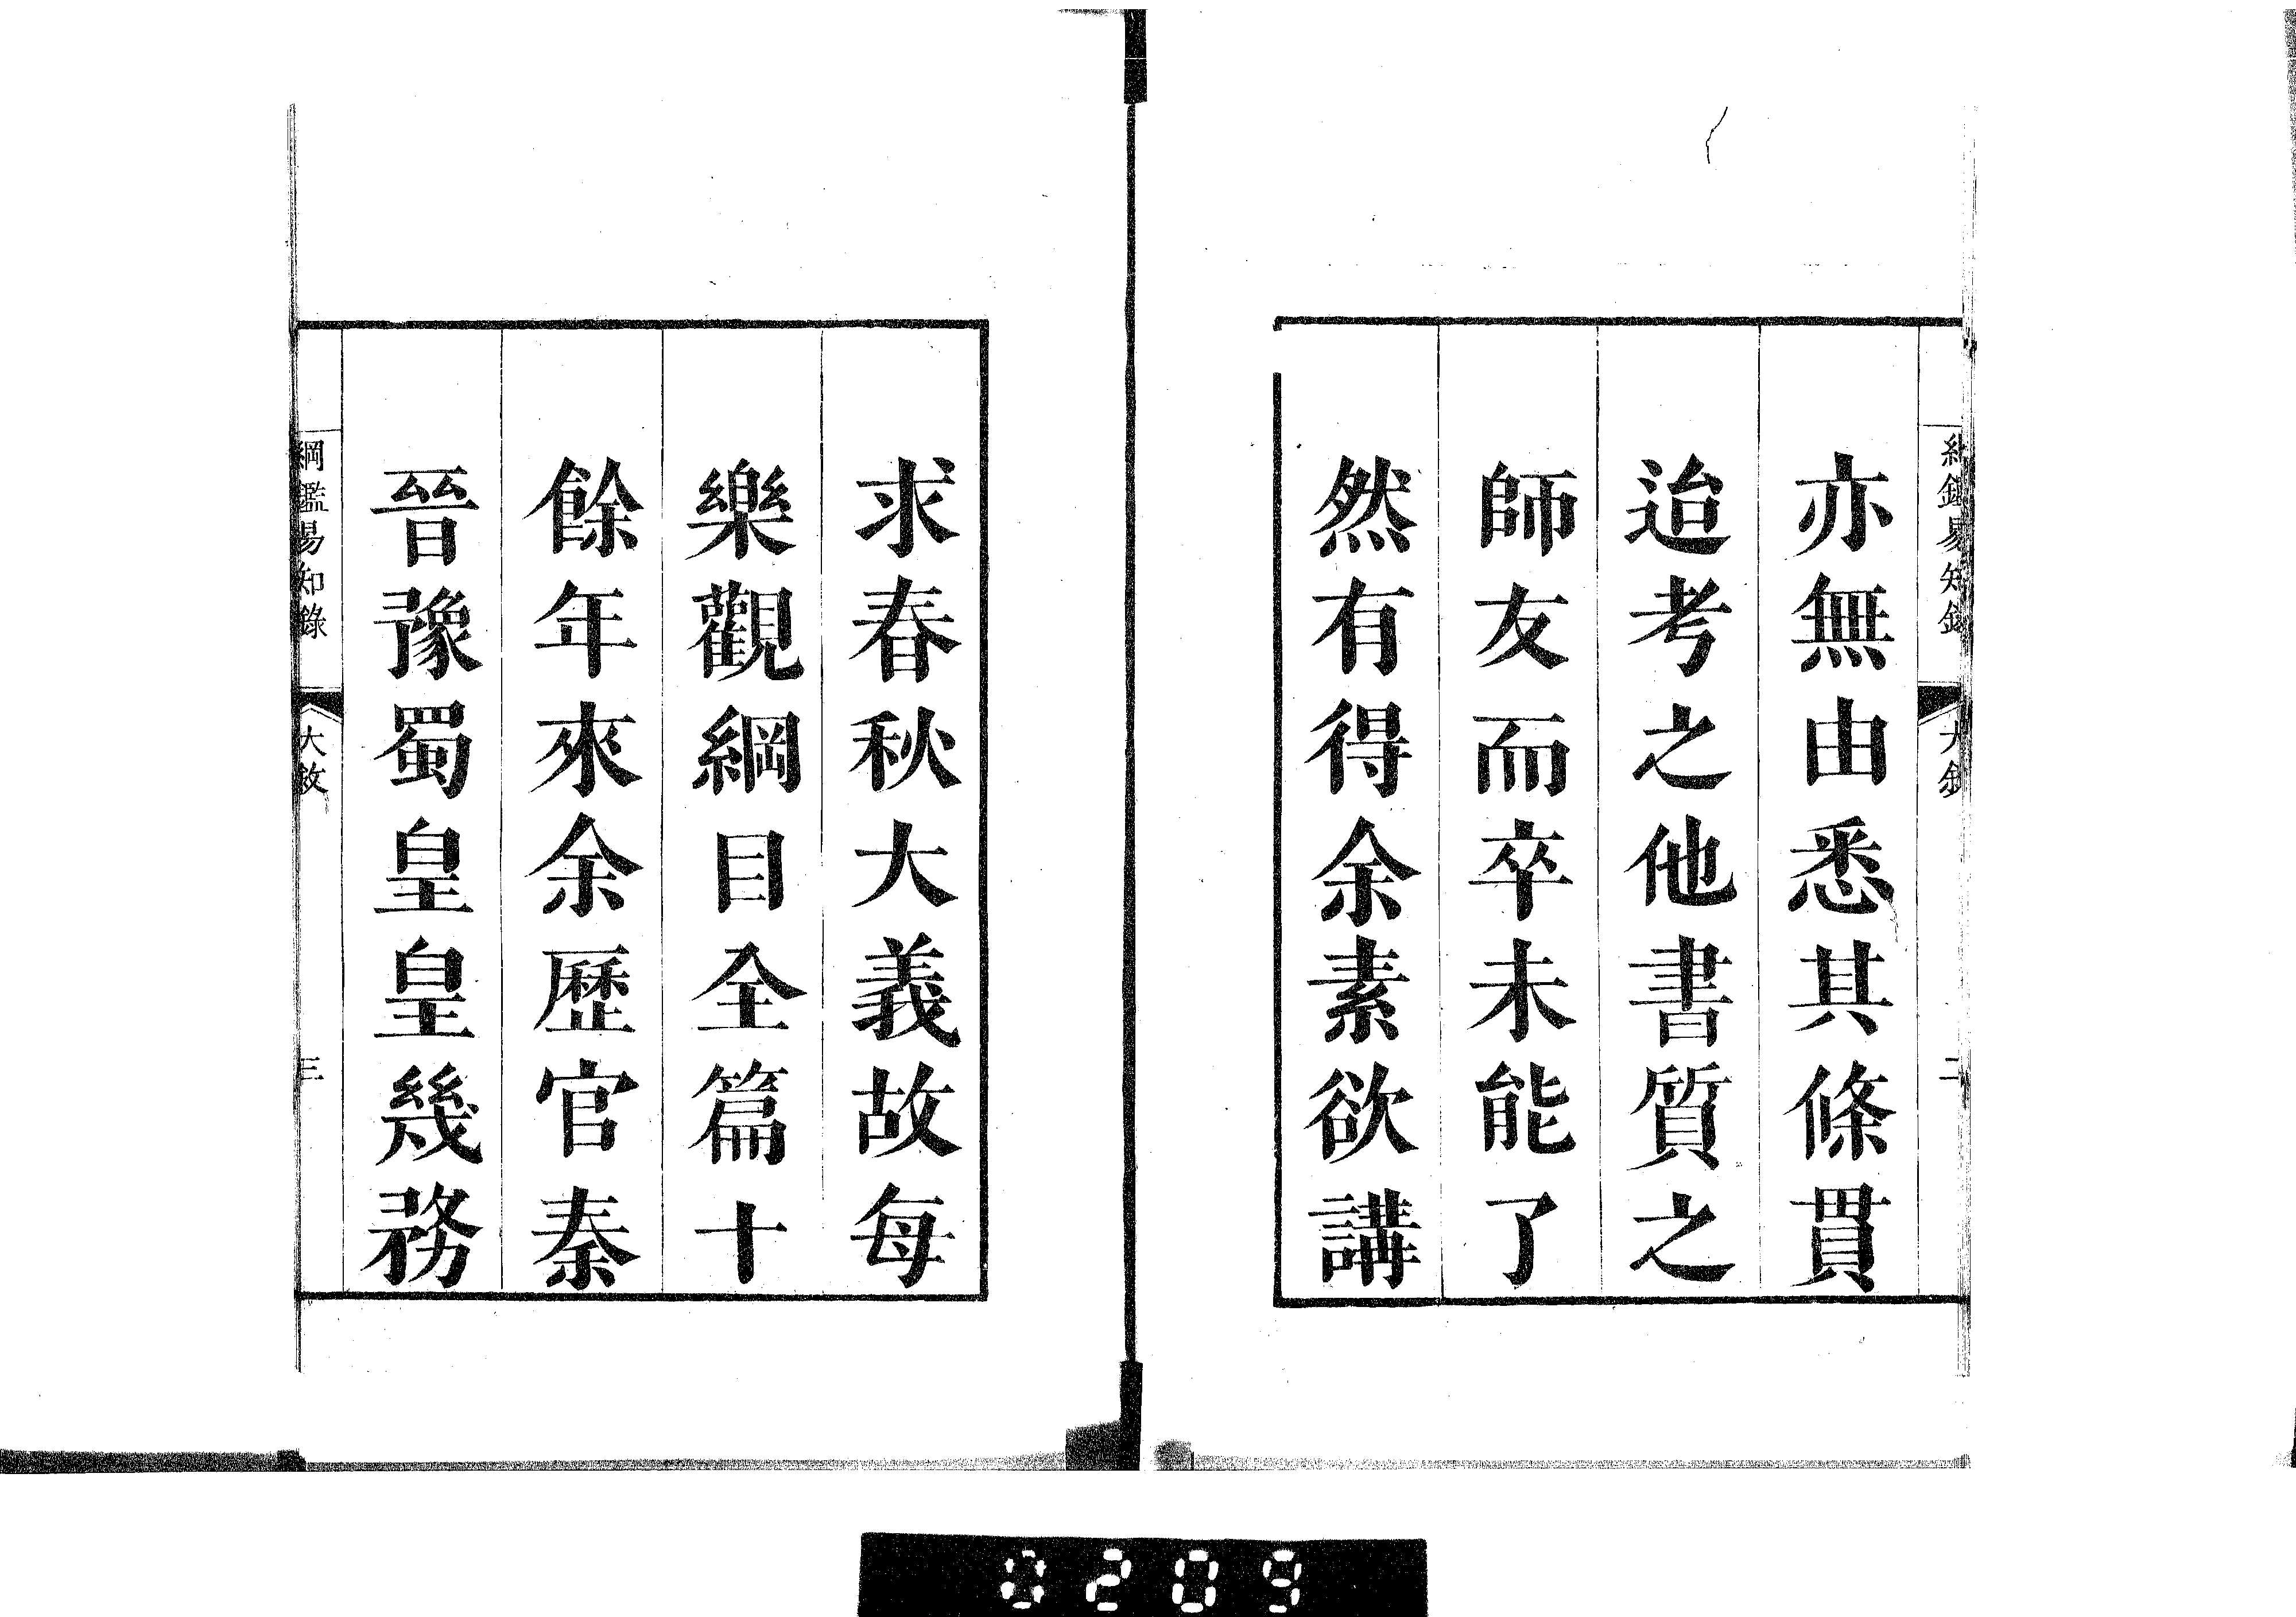 亦無由悉其條貫
迨考之他書質之
師友而卒未能了
然有得余素欲講
求春秋大義故每
樂觀綱目全篇十
餘年來余歷官秦
晉豫蜀皇皇幾務
綱鑑易知錄
大敘
二
綱鑑易知錄
大敘
三
0209